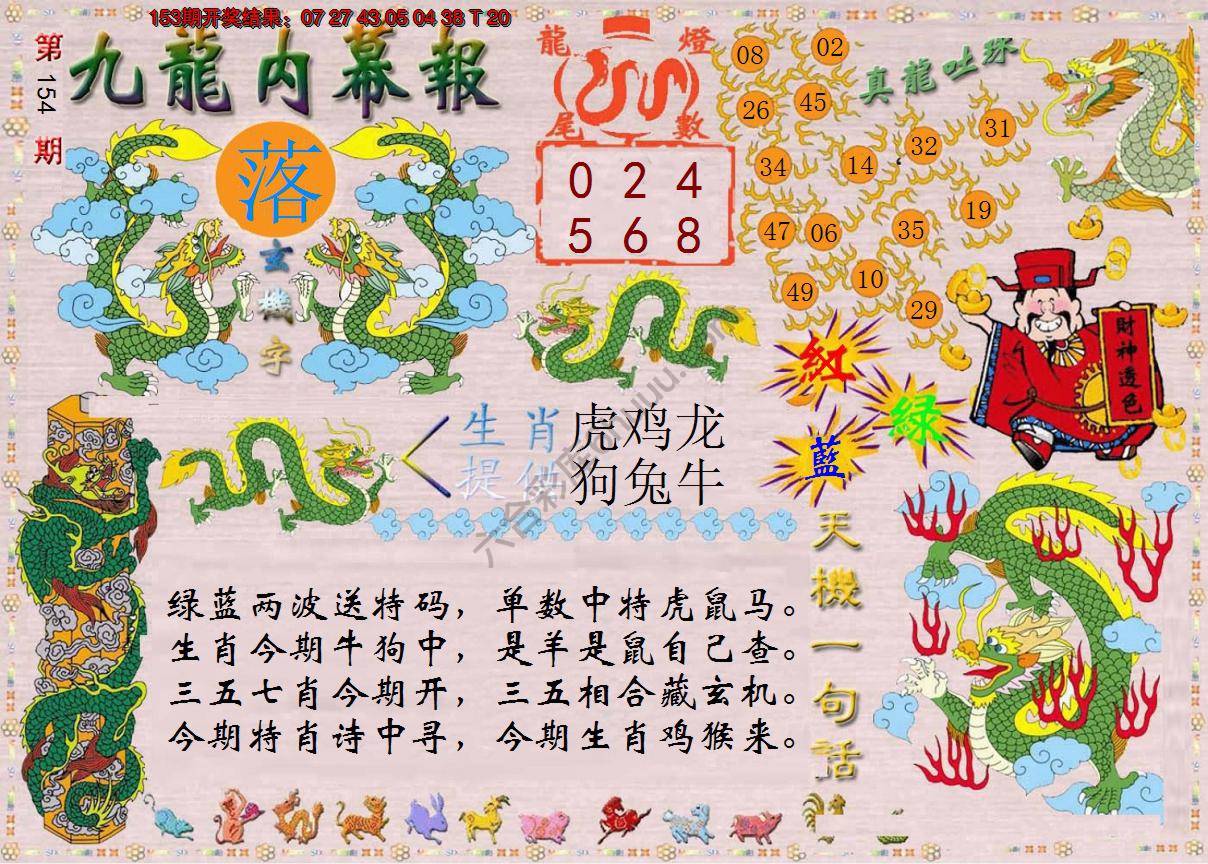 153期开奖结果：07 27 43 05 04 38 T 20
第154期
九龍内幕報
落
玄機字
龍燈
尾數
0 2 4
5 6 8
真龍吐珠
08 02
26 45
34 14 32 31
47 06 35 19
49 10 29
財神透色
紅
綠
藍
生肖
提供
虎鸡龙
狗兔牛
绿蓝两波送特码，单数中特虎鼠马。
生肖今期牛狗中，是羊是鼠自己查。
三五七肖今期开，三五相合藏玄机。
今期特肖诗中寻，今期生肖鸡猴来。
天機一句話